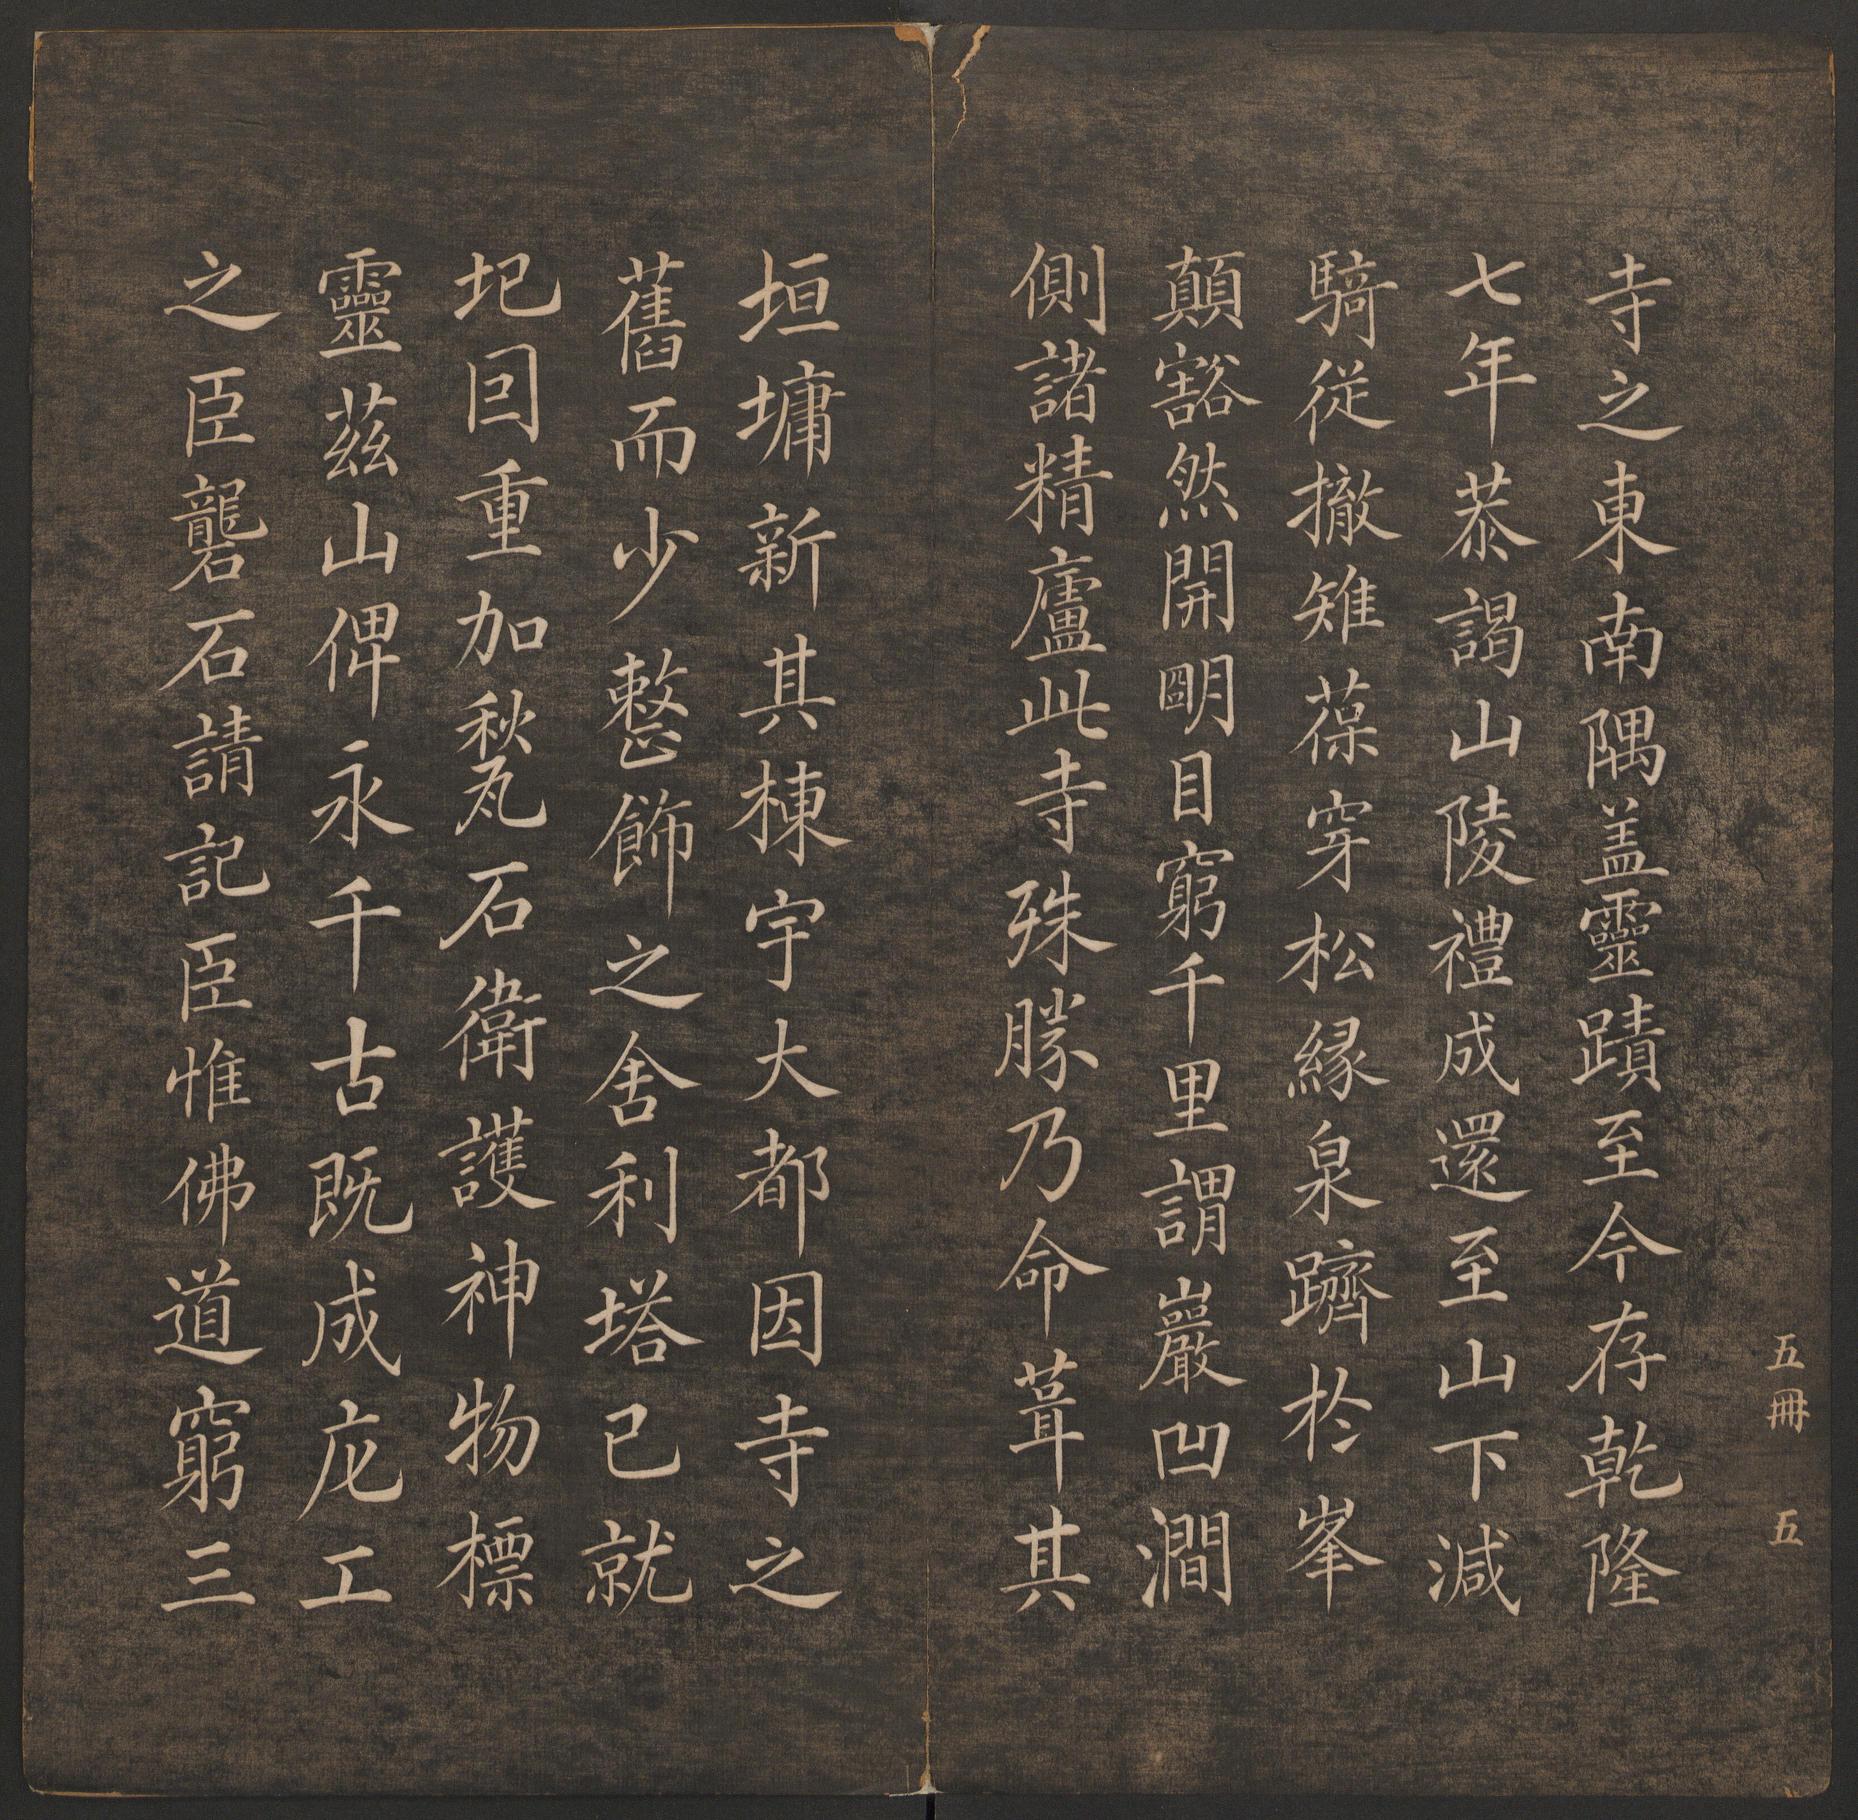 寺之東南隅盖靈蹟至今存乾隆
七年恭謁山陵禮成還至山下減
騎從撤雉葆穿松緣泉躋於峯
顛豁然開朙目窮千里謂巖凹澗
側諸精廬此寺殊勝乃命葺其
垣墉新其棟宇大都因寺之
舊而少整飾之舍利塔已就
圮囙重加甃石衛護神物標
靈茲山俾永千古既成庀工
之臣礱石請記臣惟佛道窮三
五冊 五